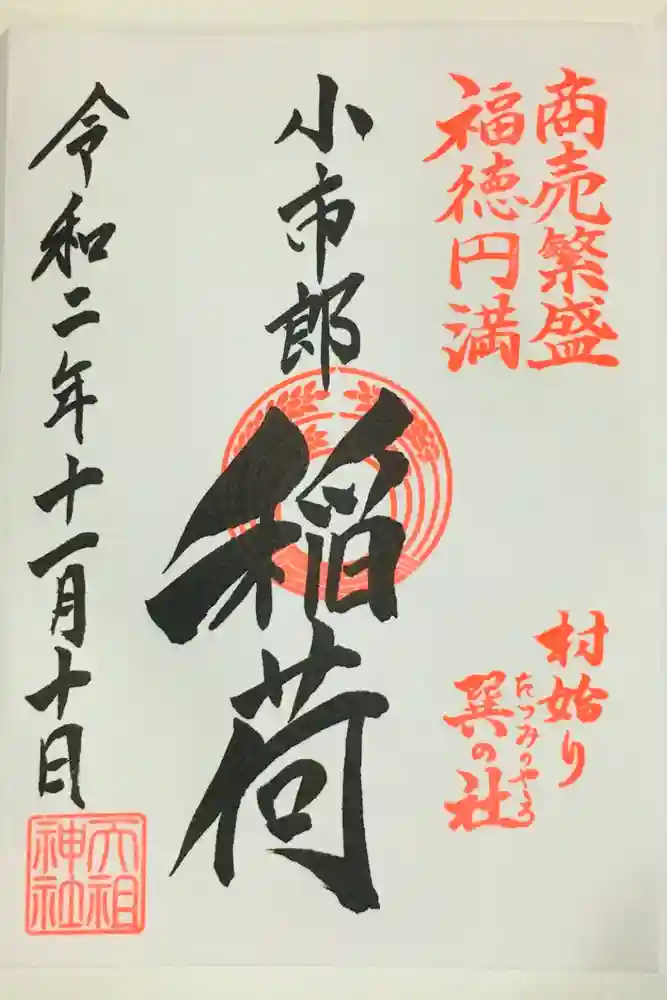 商売繁盛
福徳円満
村始り
巽の社
たつみのやしろ
小市郎
稲荷
令和二年十一月十日
大祖
神社